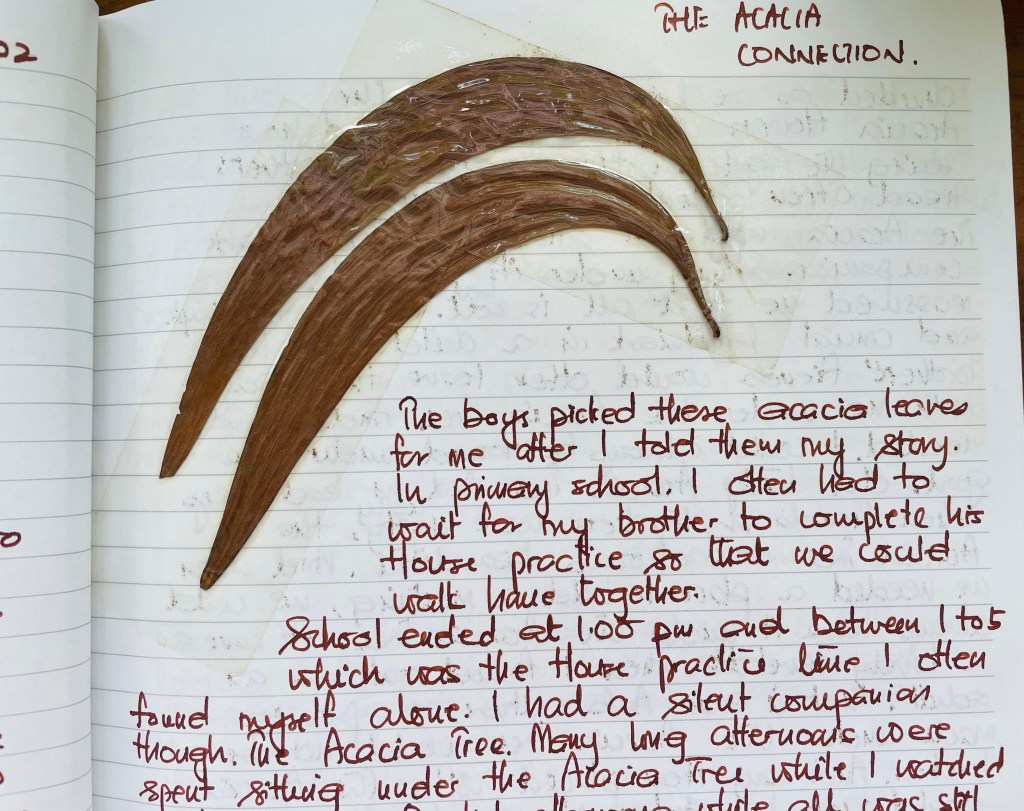 02
THE ACACIA
CONNECTION.
The boys picked these acacia leaves
for me after I told them my story.
In primary school. I often had to
wait for my brother to complete his
House practice so that we could
walk home together.
School ended at 1.00 pm and between 1 to 5
which was the House practice time I often
found myself alone. I had a silent companion
though. The Acacia Tree. Many long afternoons were
spent sitting under the Acacia Tree while I watched
while all was still